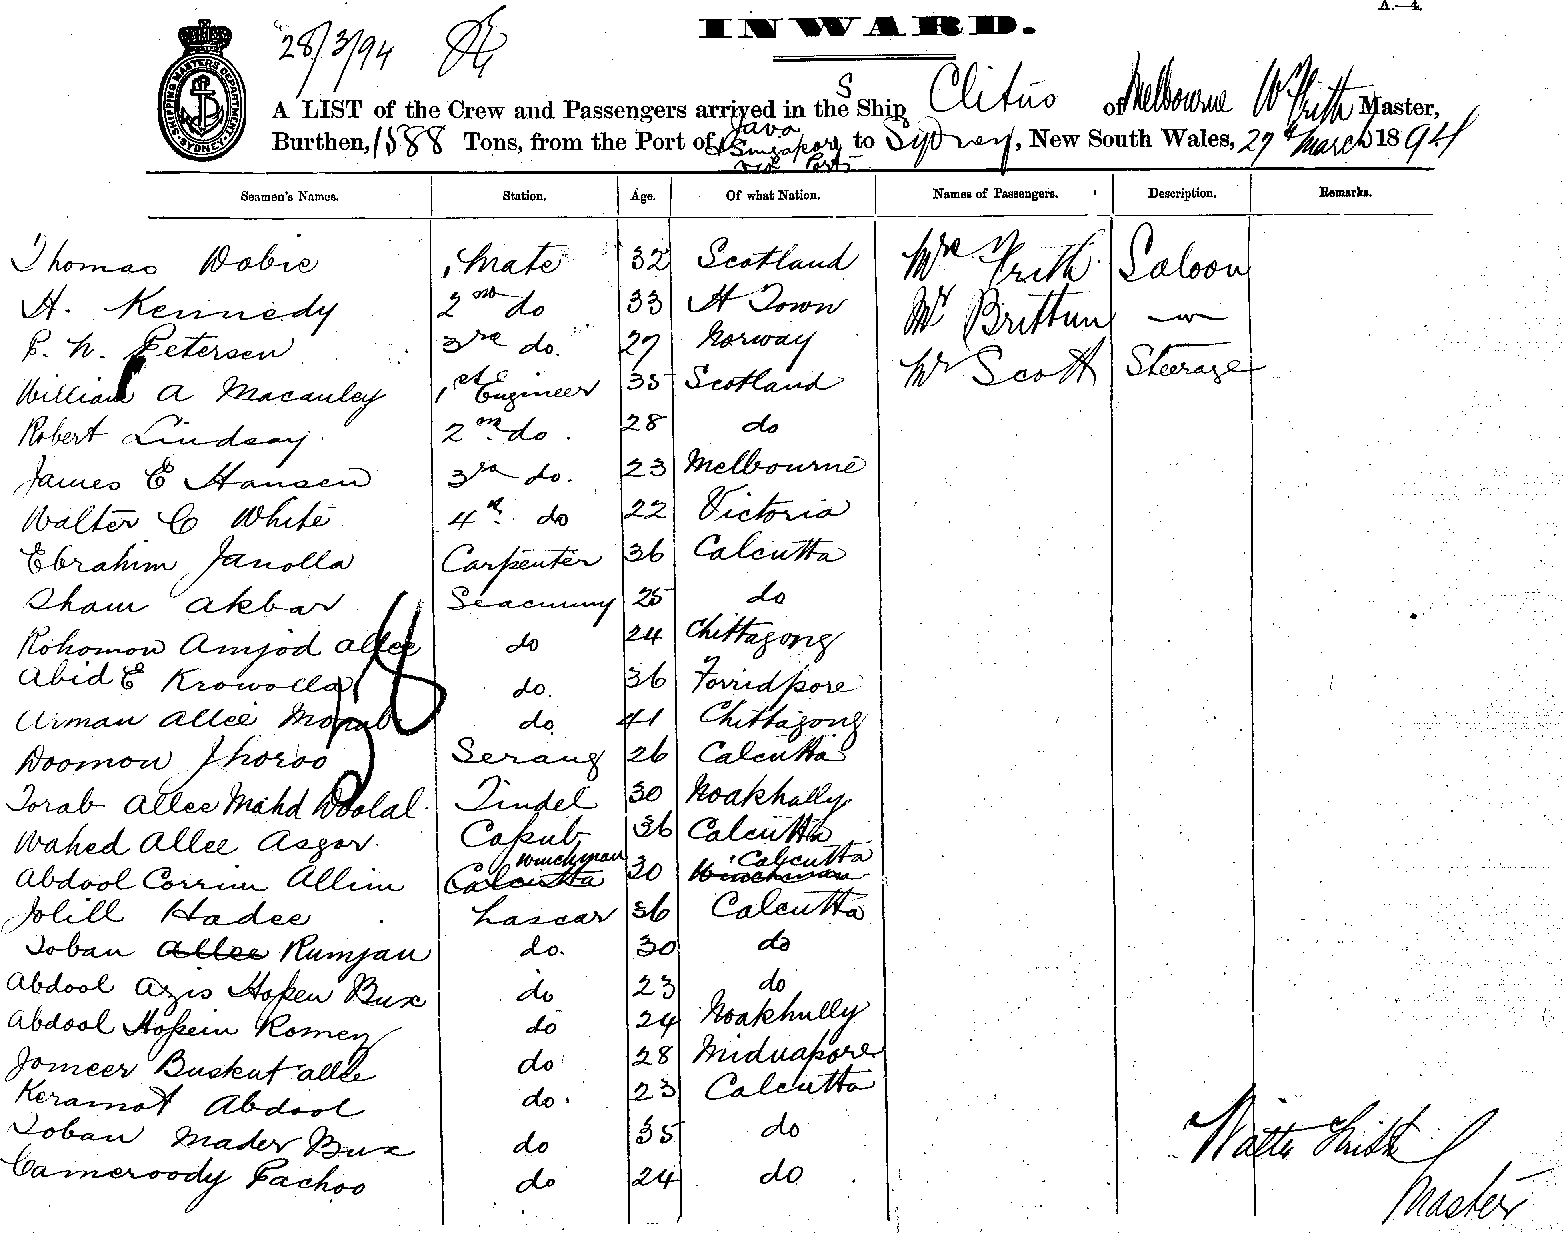 A.—4.
28/3/94
INWARD.
SHIPPING MASTERS DEPARTMENT SYDNEY
A LIST of the Crew and Passengers arrived in the S Ship Clitus of Melbourne W Frith Master,
Burthen, 1588 Tons, from the Port of Java & Singapore via Ports to Sydney, New South Wales, 29th March 1894
Seamen's Names. Station. Age. Of what Nation. Names of Passengers. Description. Remarks.
Thomas Dobie 1 Mate 32 Scotland Mrs Frith Saloon
H. Kennedy 2nd do 33 H Town Mr Brittun —"—
P. N. Petersen 3rd do. 27 Norway Mr Scott Steerage
William A Macauley 1st Engineer 35 Scotland
Robert Lindsay 2nd do. 28 do
James E Hansen 3rd do. 23 Melbourne
Walter C White 4th do 22 Victoria
Ebrahim Janolla Carpenter 36 Calcutta
Sham Akbar Seacunny 25 do
Rohomon Amjod Allee do 24 Chittagong
Abid E Krowolla do. 36 Forridpore
Arman Allee Monab do 41 Chittagong
Doomon Jhoroo Serang 26 Calcutta
Torab Allee Mahd Doolal Tindel 30 Noakhally
Wahed Allee Asgar Casub 36 Calcutta
Abdool Corrim Allim Calcutta Winchman 30 Winchman Calcutta
Jolill Hadee Lascar 36 Calcutta
Toban Allee Rumjan do. 30 do
Abdool Azis Hosen Bux do 23 do
Abdool Hosein Romez do 24 Noakhully
Jomeer Buskut allee do 28 Midnapore
Keramot Abdool do. 23 Calcutta
Toban Mader Bux do 35 do
Cameroody Pachoo do 24 do
Walter Frith
Master